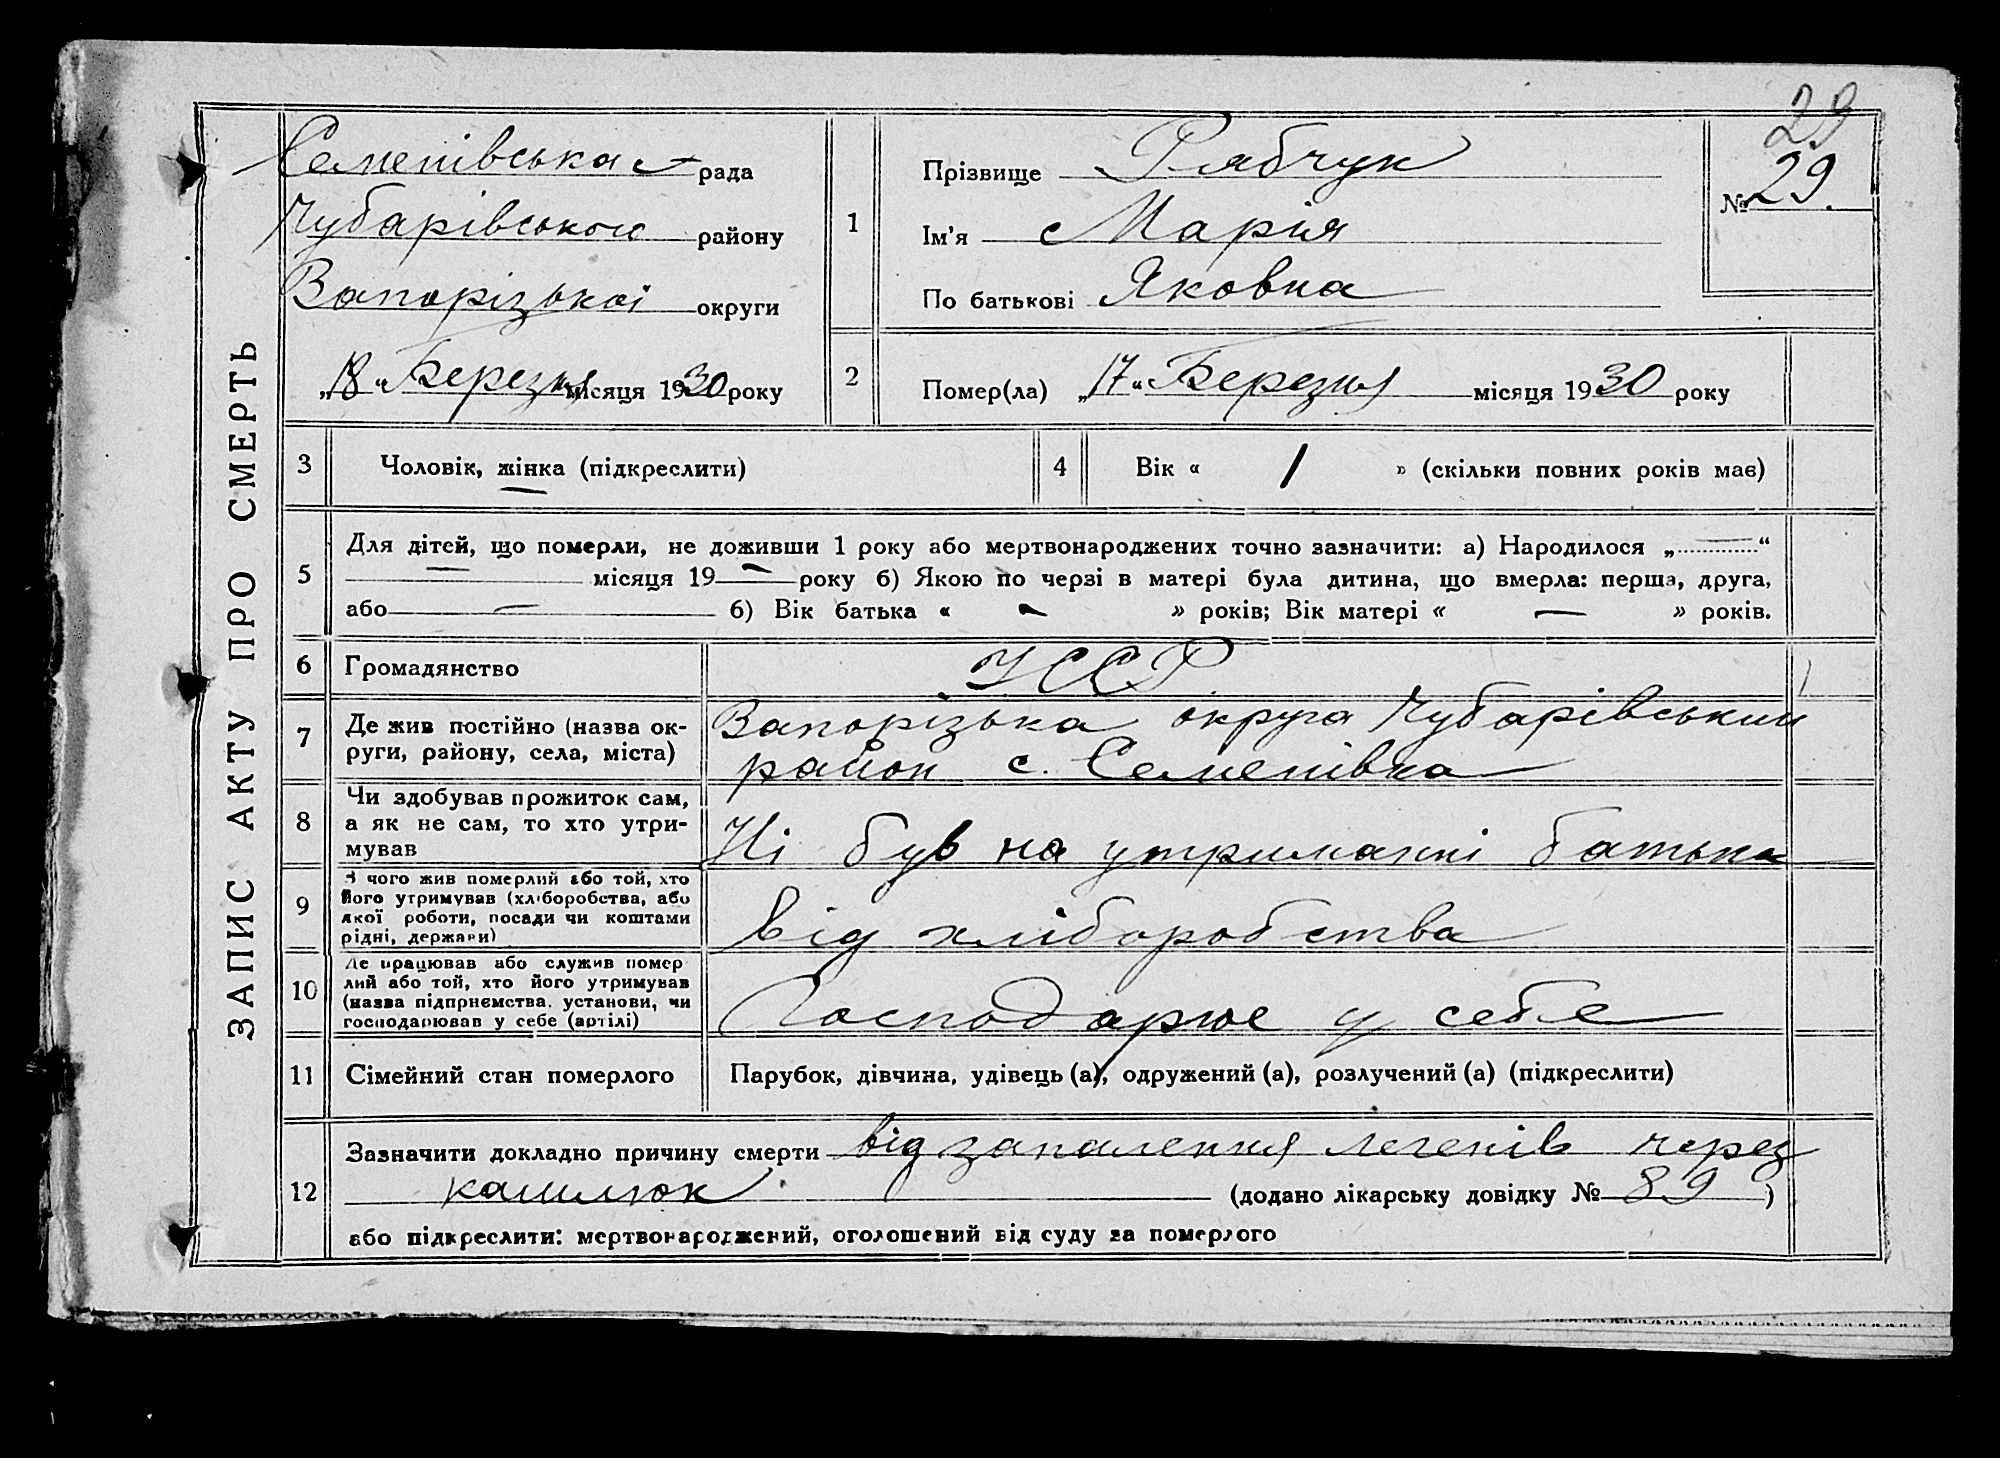 ЗАПИС АКТУ ПРО СМЕРТЬ
29
№ 29.
Семенівська рада
Чубарівського району
Запорізької округи
„18“ Березня місяця 1930 року
1
Прізвище Рябчук
Ім'я Марія
По батькові Яковна
2
Помер(ла) „17“ Березня місяця 1930 року
3 Чоловік, жінка (підкреслити)
4 Вік « 1 » (скільки повних років має)
5
Для дітей, що померли, не доживши 1 року або мертвонароджених точно зазначити: а) Народилося „—“
— місяця 19 — року б) Якою по черзі в матері була дитина, що вмерла: перша, друга,
або — б) Вік батька « — » років; Вік матері « — » років.
6 Громадянство УССР
7
Де жив постійно (назва ок-
руги, району, села, міста)
Запорізька округа Чубарівський
район с. Семенівка
8
Чи здобував прожиток сам,
а як не сам, то хто утри-
мував
Ні був на утриманні батька
9
З чого жив померлий або той, хто
його утримував (хліборобства, або
якої роботи, посади чи коштами
рідні, держави)
Від хліборобства
10
Де працював або служив помер
лий або той, хто його утримував
(назва підприємства, установи, чи
господарював у себе (артілі)
Господарює у себе
11 Сімейний стан померлого
Парубок, дівчина, удівець (а), одружений (а), розлучений (а) (підкреслити)
12
Зазначити докладно причину смерти від запалення легенів через
кашлюк (додано лікарську довідку № 89 )
або підкреслити: мертвонароджений, оголошений від суду за померлого